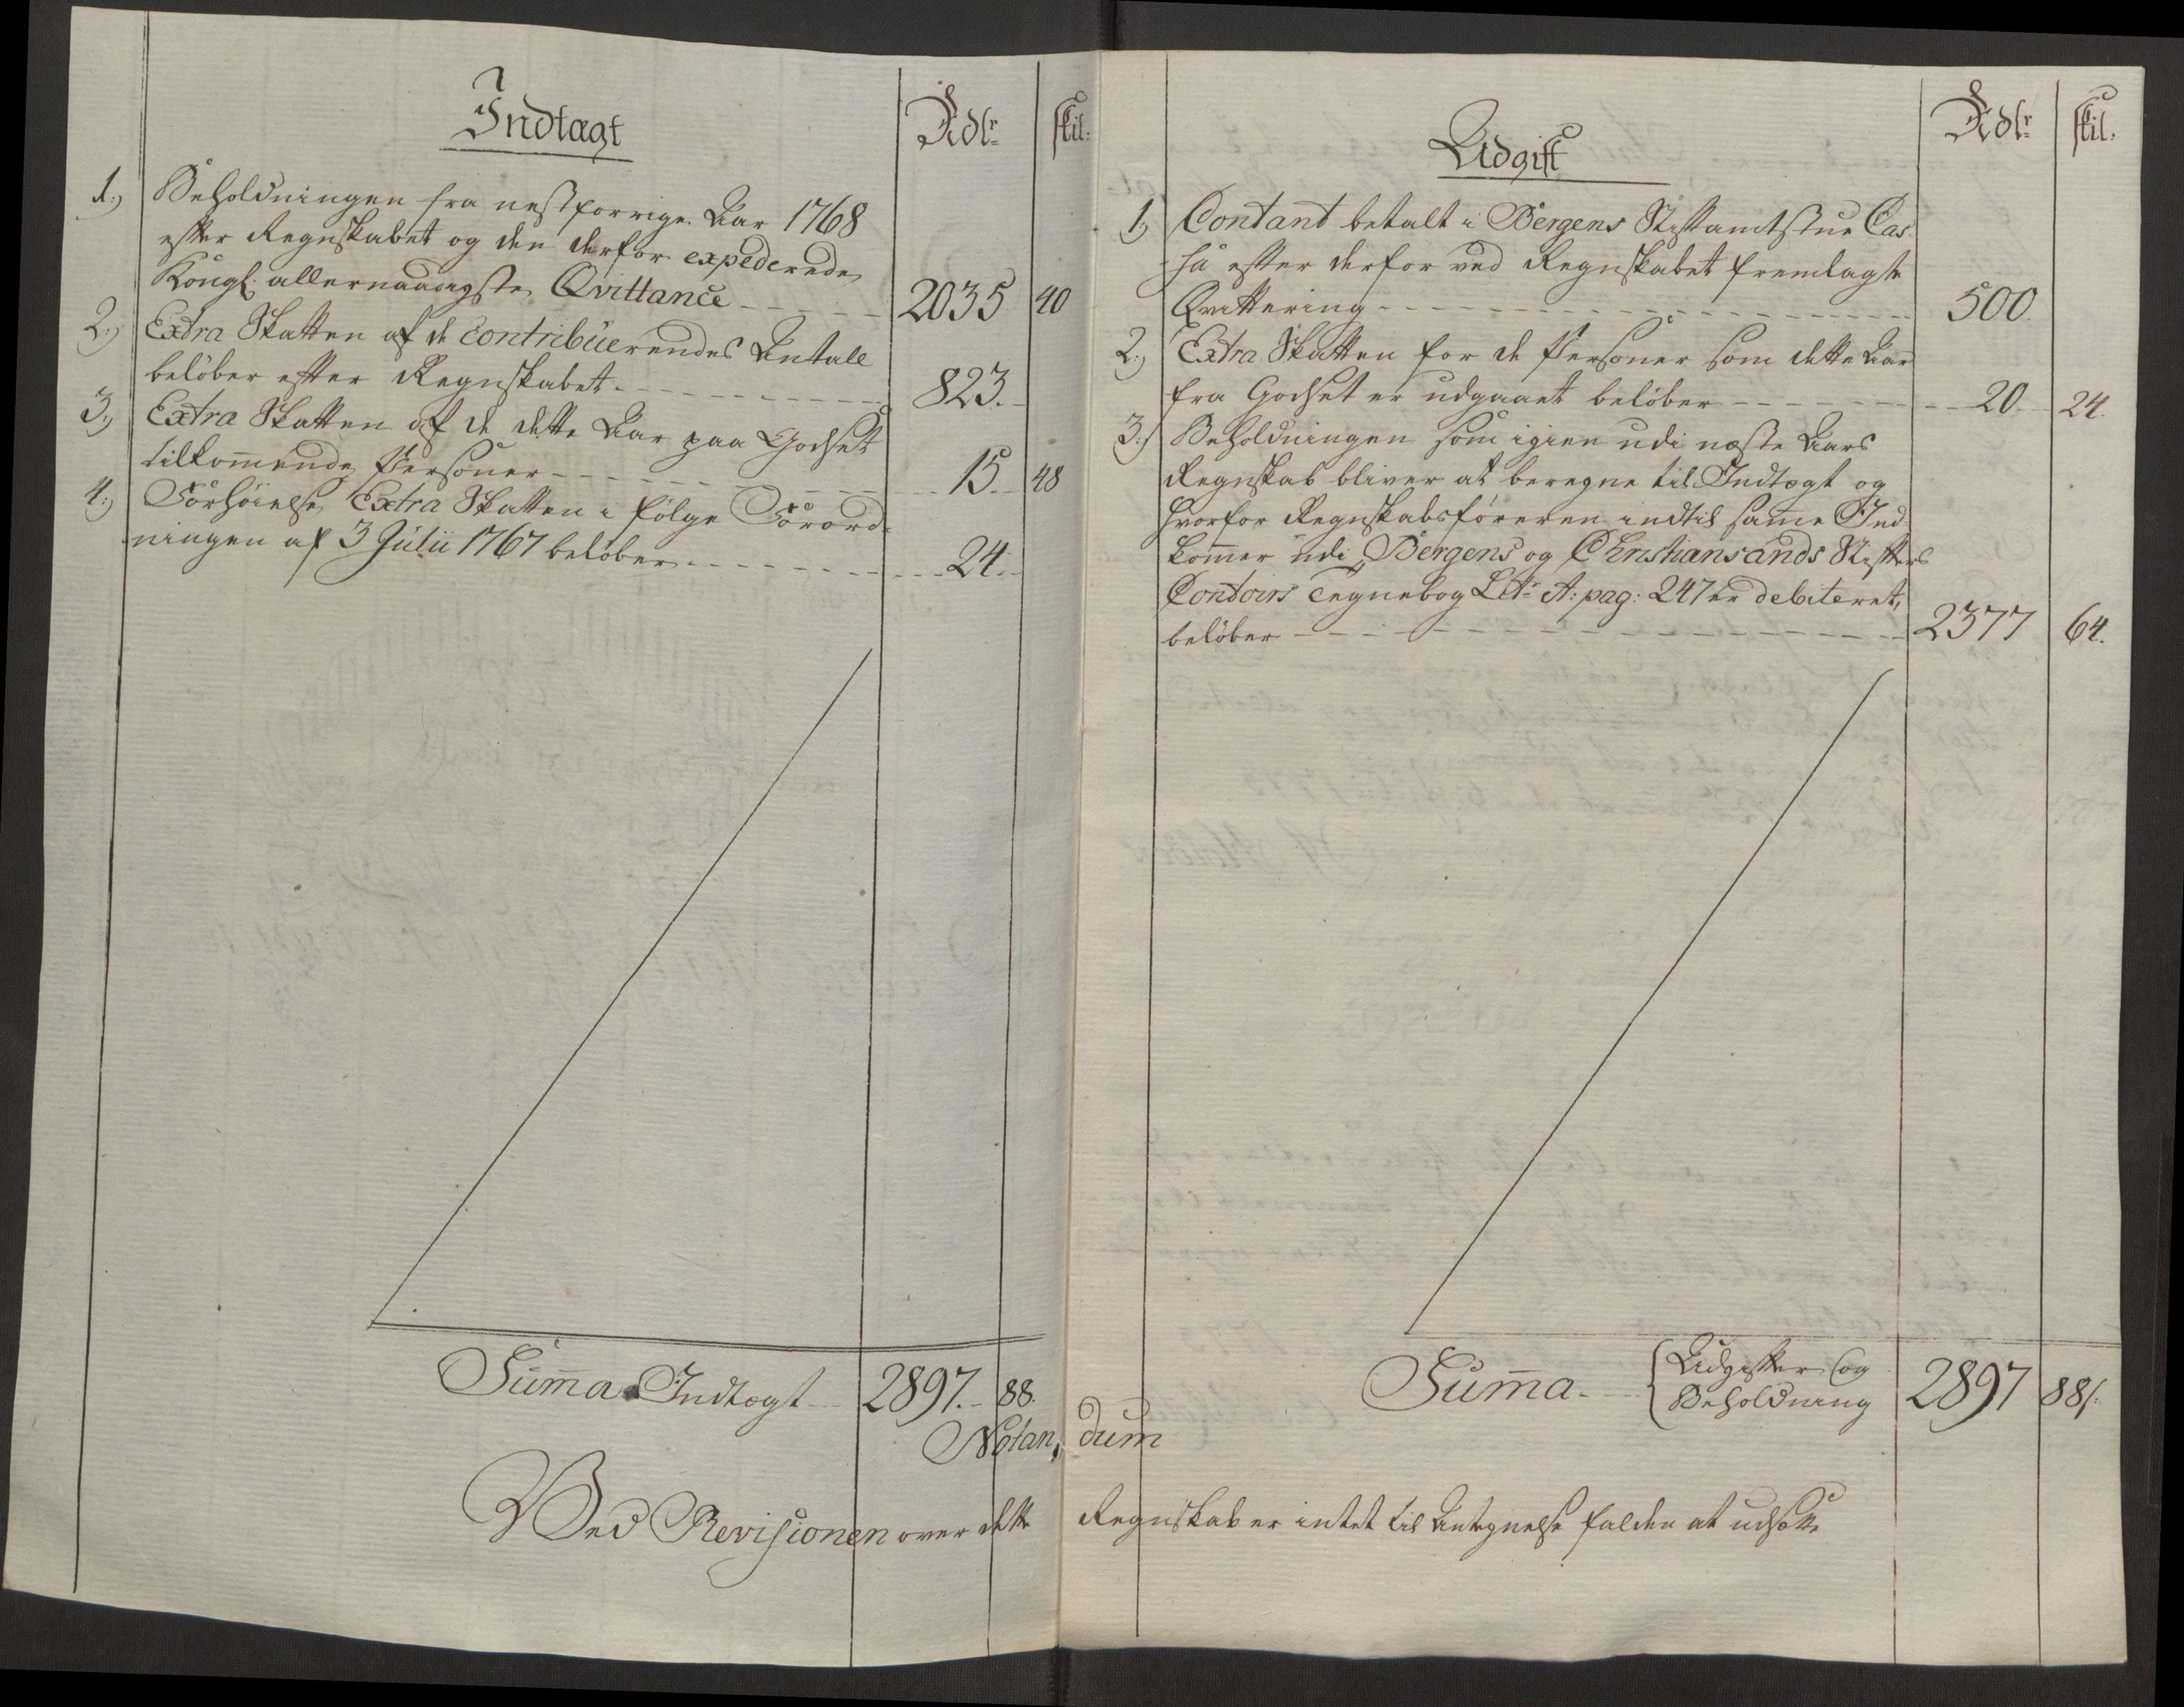 Indtægt
Rdlr
skil:
1.) Beholdningen fra nestforrige Aar 1768
efter Regnskabet og den derfor expederede
Kongl: allernaadigste Qvittance - - - 2035 40
2.) Extra Skatten af de contribuerendes Antall
beløber efter Regnskabet - - - 823.
3.) Extra Skatten af de dette Aar paa Godset
tilkom̄ende Personer - - - 15. 48
4.) Forhøielse Extra Skatten i følge Forord-
ningen af 3 Julii 1767 beløber - - - 24.
Sum̄a Indtægt 2897. 88.
Udgift
Rdlr
skil.
1.) Contant betalt i Bergens Stiftamtstue Cas-
sa efter derfor ved Regnskabet fremlagte
Qvittering - - - 500.
2.) Extra Skatten for de Personer som dette Aar
fra Godset er udgaaet beløber - - - 20 24.
3.) Beholdningen som igien udi næste Aars
Regnskab bliver at beregne til Indtægt og
hvorfor Regnskabsføreren indtil sam̄e Ind-
kom̄er udi Bergens og Christiansands Stifters
Contoirs Tegnebog Litr A: pag: 247 er debiteret,
beløber - - - 2377 64.
Sum̄a - - Udgifter og
Beholdning 2897 88/.
Notan, dum
Ved Revisionen over dette Regnskab er intet til Antegnelse falden at udsætte